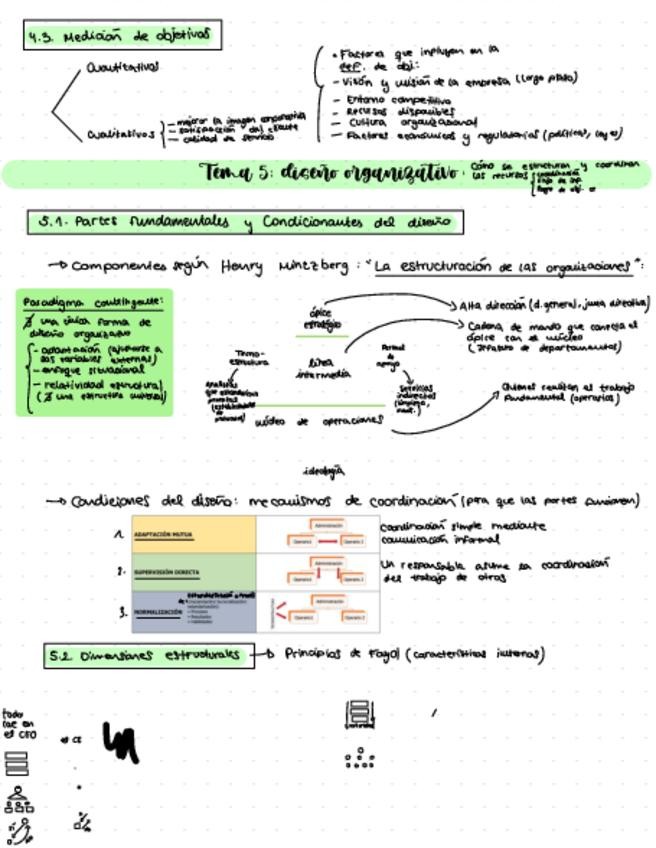 4.3. Medición de objetivos
Cuantitativos
Cualitativos
- mejorar la imagen corporativa
- satisfacción del cliente
- calidad de servicio
• Factores que influyen en la
def. de obj:
- Visión y misión de la empresa (largo plazo)
- Entorno competitivo
- Recursos disponibles
- Cultura organizacional
- Factores económicos y regulatorios (políticos, leyes)
Tema 5: diseño organizativo: Cómo se estructuran y coordinan
los recursos
5.1. Partes fundamentales y Condicionantes del diseño
→ Componentes según Henry Mintzberg: "La estructuración de las organizaciones":
Paradigma contingente:
∄ una única forma de
diseño organizativo
- adaptación (ajustarse a
las variables externas)
- enfoque situacional
- relatividad estructural
(∄ una estructura universal)
ápice
estratégico
Tecno-
estructura
línea
intermedia
Personal
de
apoyo
Analistas
que estandarizan
procesos
Servicios
indirectos
(limpieza,
núcleo de operaciones
Alta dirección (d. general, junta directiva)
Cadena de mando que conecta el
ápice con el núcleo
(Jefatura de departamentos)
Quienes realizan el trabajo
fundamental (operarios)
ideología
→ Condiciones del diseño: mecanismos de coordinación (para que las partes funcionen)
1. ADAPTACIÓN MUTUA
Administración
Operario 1 Operario 2
coordinación simple mediante
comunicación informal
2. SUPERVISIÓN DIRECTA
Administración
Operario 1 Operario 2
Un responsable asume la coordinación
del trabajo de otros
3. NORMALIZACIÓN
• Procesos
• Resultados
• Habilidades
Administración
Operario 1 Operario 2
5.2 Dimensiones estructurales → Principios de Fayol (características internas)
todo
cae en
el CEO